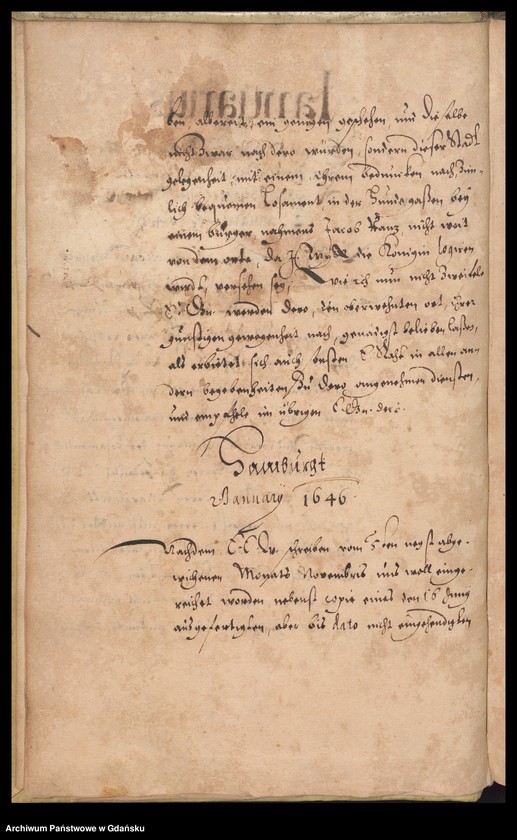 ben albereits ein geringes geschehen und dieselbe
nicht zwar nach dero würden, sondern dieser Stadt
gelegenheit, mit einem, ihrem bedüncken nach, zim-
lich bequemen Losament in der Hundegassen bey
einem bürger nahmens Jacob Kranz, nicht weit
von dem orte, da I. May. die Königin logiren
wirdt, versehen sey,
wie ich nun nicht zweifele
E. Gn. werden dero, den oberwehnten ort, ihrer
günstigen gewogenheit nach, genädigst belieben lassen,
als erbietet sich auch dessen E. Raht in allen an-
dern begebenheiten, zu dero angenehmen diensten,
und empfehle im übrigen E. Gn. der
Hamburgk
Januarÿ 1646
Nachdem E. E. W. schreiben vom 5ten negst abge-
wichenen Monats Novembris uns woll einge-
reichet worden nebenst copie eines den 16 Juny
ausgefertigten, aber bis dato nicht eingehändigten
Archiwum Państwowe w Gdańsku